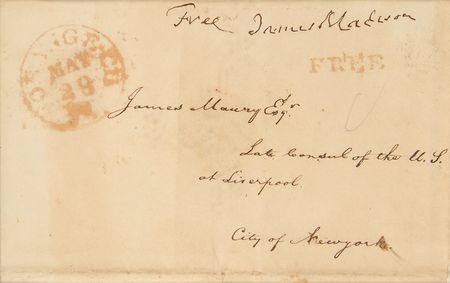 Free James Madison
FREE
MAY
29
James Maury Esqr.
Late Consul of the U. S.
at Liverpool.
City of Newyork.